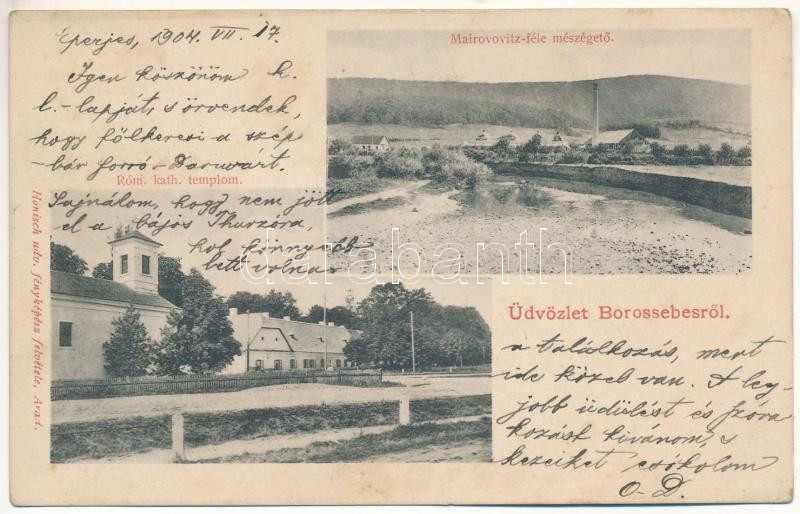 Eperjes, 1904. VII. 17.
Igen köszönöm k.
l.-lapját, s örvendek,
hogy fölkeresi a szép
-bár forró- Daruvárt.
Sajnálom, hogy nem jött
el a bájos Thurzóra,
hol könnyebb
lett volna
a találkozás, mert
ide közel van. A leg-
jobb üdülést és szóra
kozást kívánom, s
kezeiket csókolom
O-D.
Mairovovitz-féle mészégető.
Róm. kath. templom.
Üdvözlet Borossebesről.
Honisch udv. fényképész felvétele, Arad.
darabanth